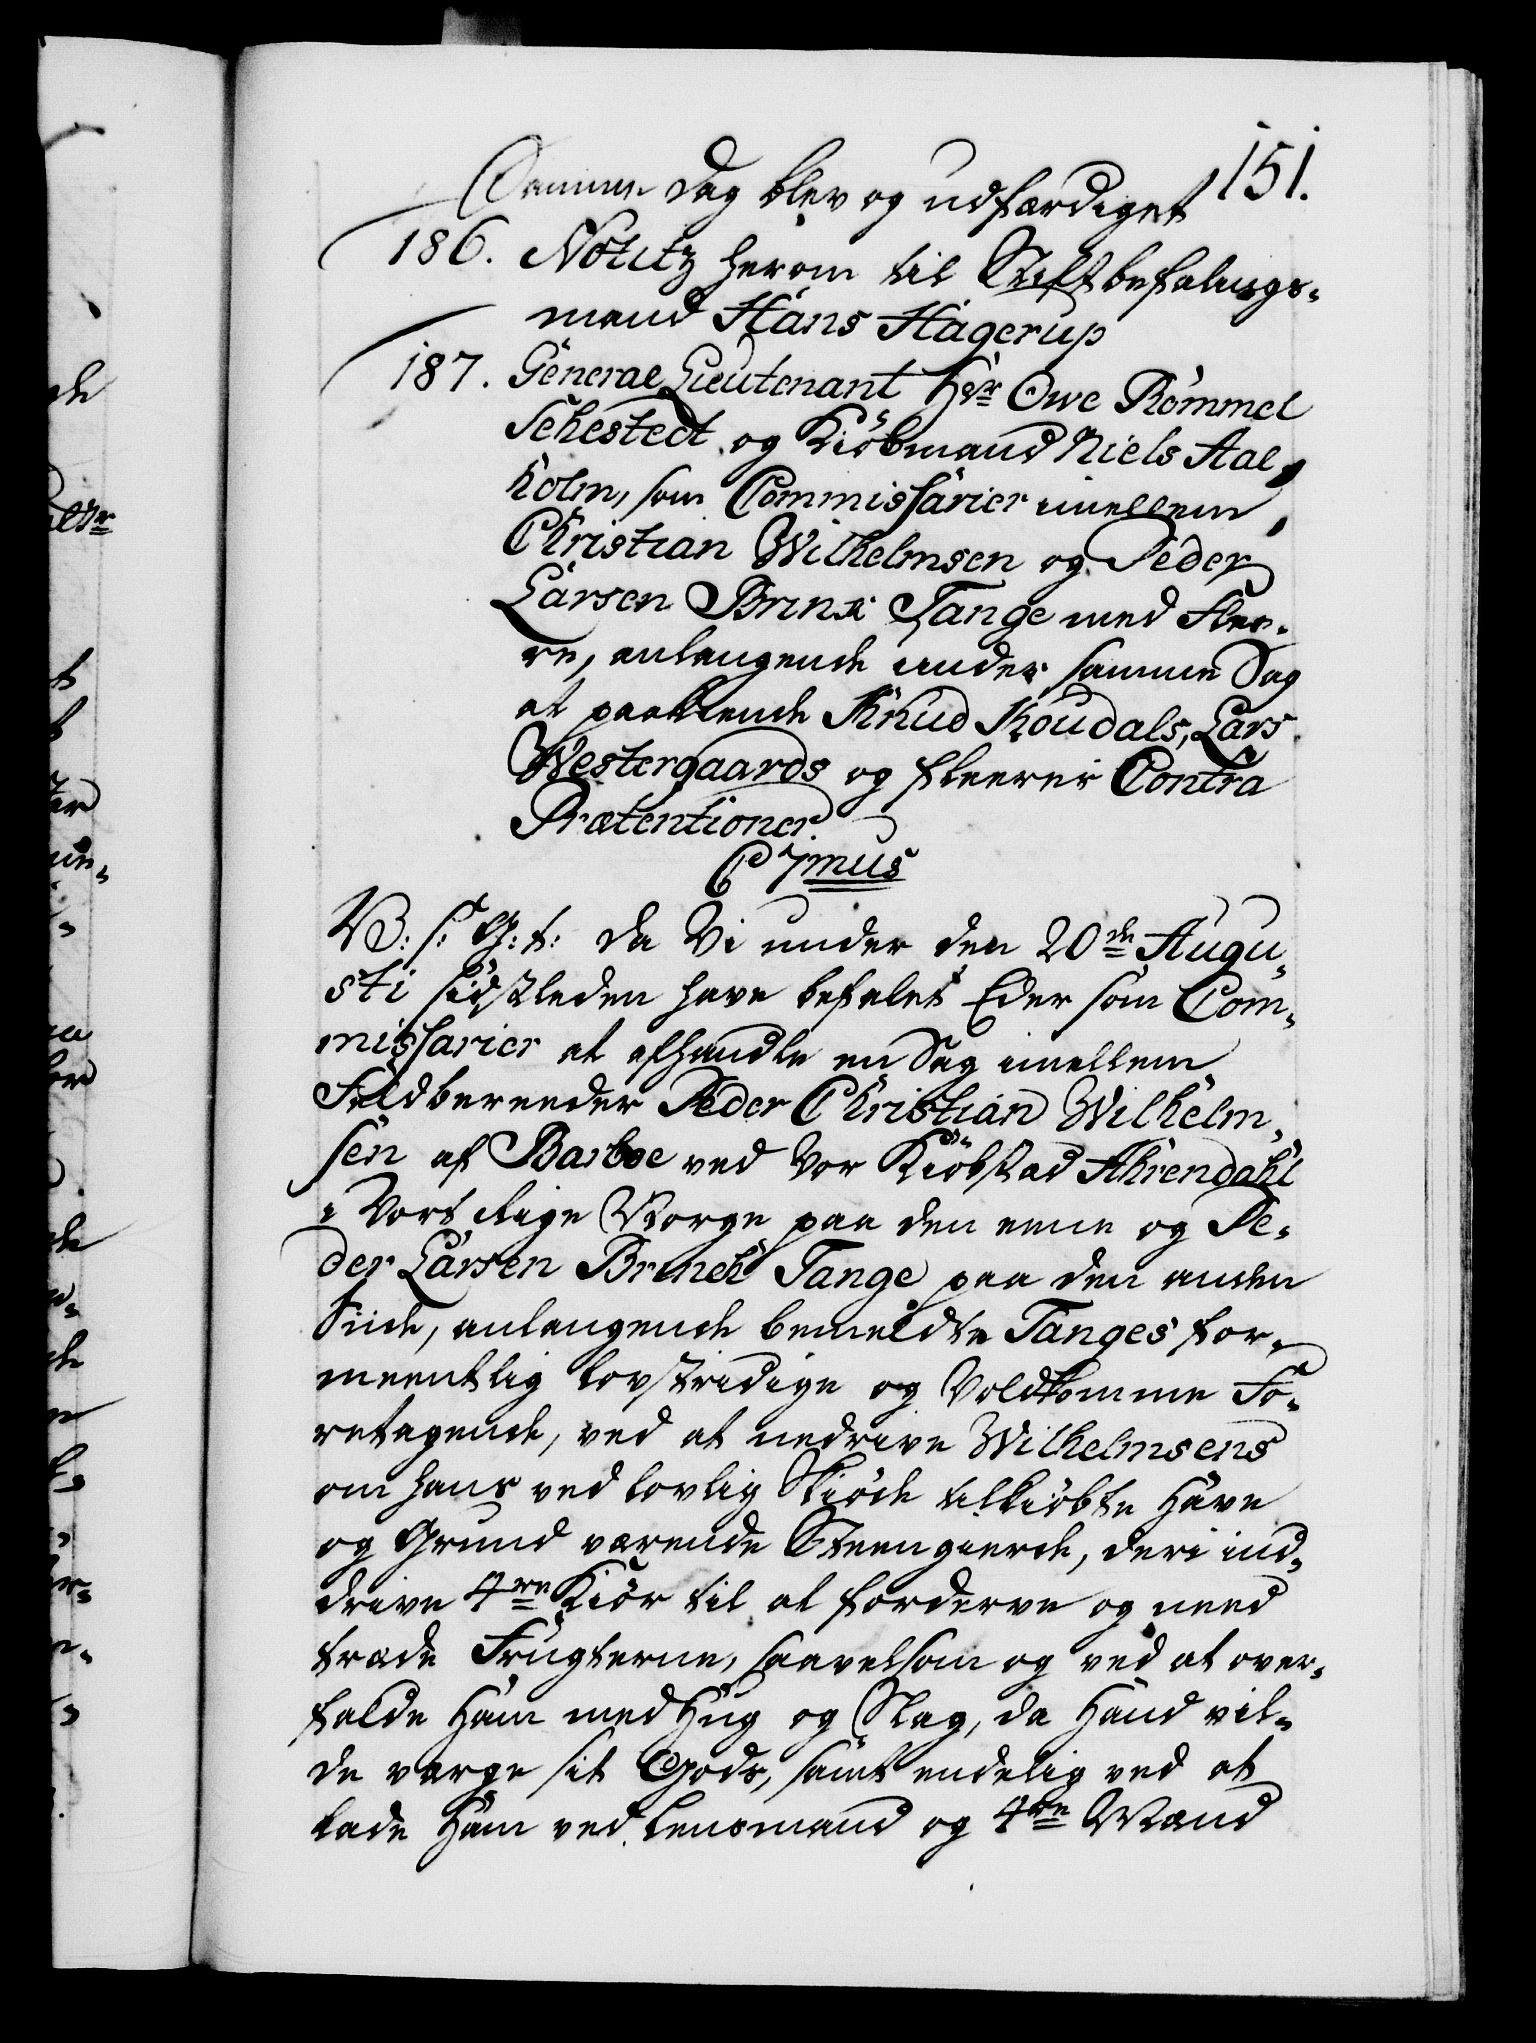 151.
Samme Dag blev og udfærdiget
186. Notitz herom til Stiftbefalings-
mand Hans Hagerup
187. General Lieutenant Hr Owe Rommel
Sehested og Kiöbmand Niels Aal,
holm, som Commissarier imellem,
Christian Wilhelmsen og Peder
Larsen Brinx Tange med flee-
re, anlangende under samme Sag
at paakiende Knud Koudals, Lars
Westergaards og fleeres Contra
Prætentioner.
C 7mus
V: s: G: t: Da Vi under den 20de Augu-
sti sidstleden have befalet Eder som Com-
missarier at afhandle en Sag imellem
Feldbereeder Peder Christian Wilhelm,
sen af Barboe ved Vor Kiöbstad Ahrendahl
i Vort Rige Norge paa den eene og Pe-
der Larsen Brinch Tange paa den anden
Siide, anlangende bemeldte Tanges for-
meentlig lovstridige og Voldsomme Fo-
retagende, ved at nedrive Wilhelmsens
om hans ved lovlig Skiöde tilkiöbte Have
og Grund værende Steengierde, deri ind-
drive 4re Kiör til at forderve og need
træde Frugterne, saavelsom og ved at over-
falde Ham med Hug og Slag, da Hand vil-
de værge sit Gods, samt endelig ved at
lade Ham ved Lensmand og 4re Mænd